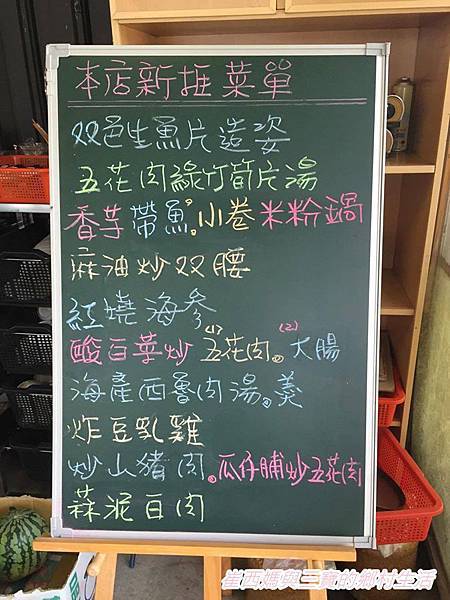 本店新推菜單
双色生魚片造姿
五花肉綠竹筍片湯
香芋帶魚。小卷米粉鍋
麻油炒双腰
紅燒海參
酸白菜炒(1)五花肉。(2)大腸
海產西魯肉湯。羹
炸豆乳雞
炒山豬肉。瓜仔脯炒五花肉
蒜泥白肉
崔西媽與三寶的鄉村生活